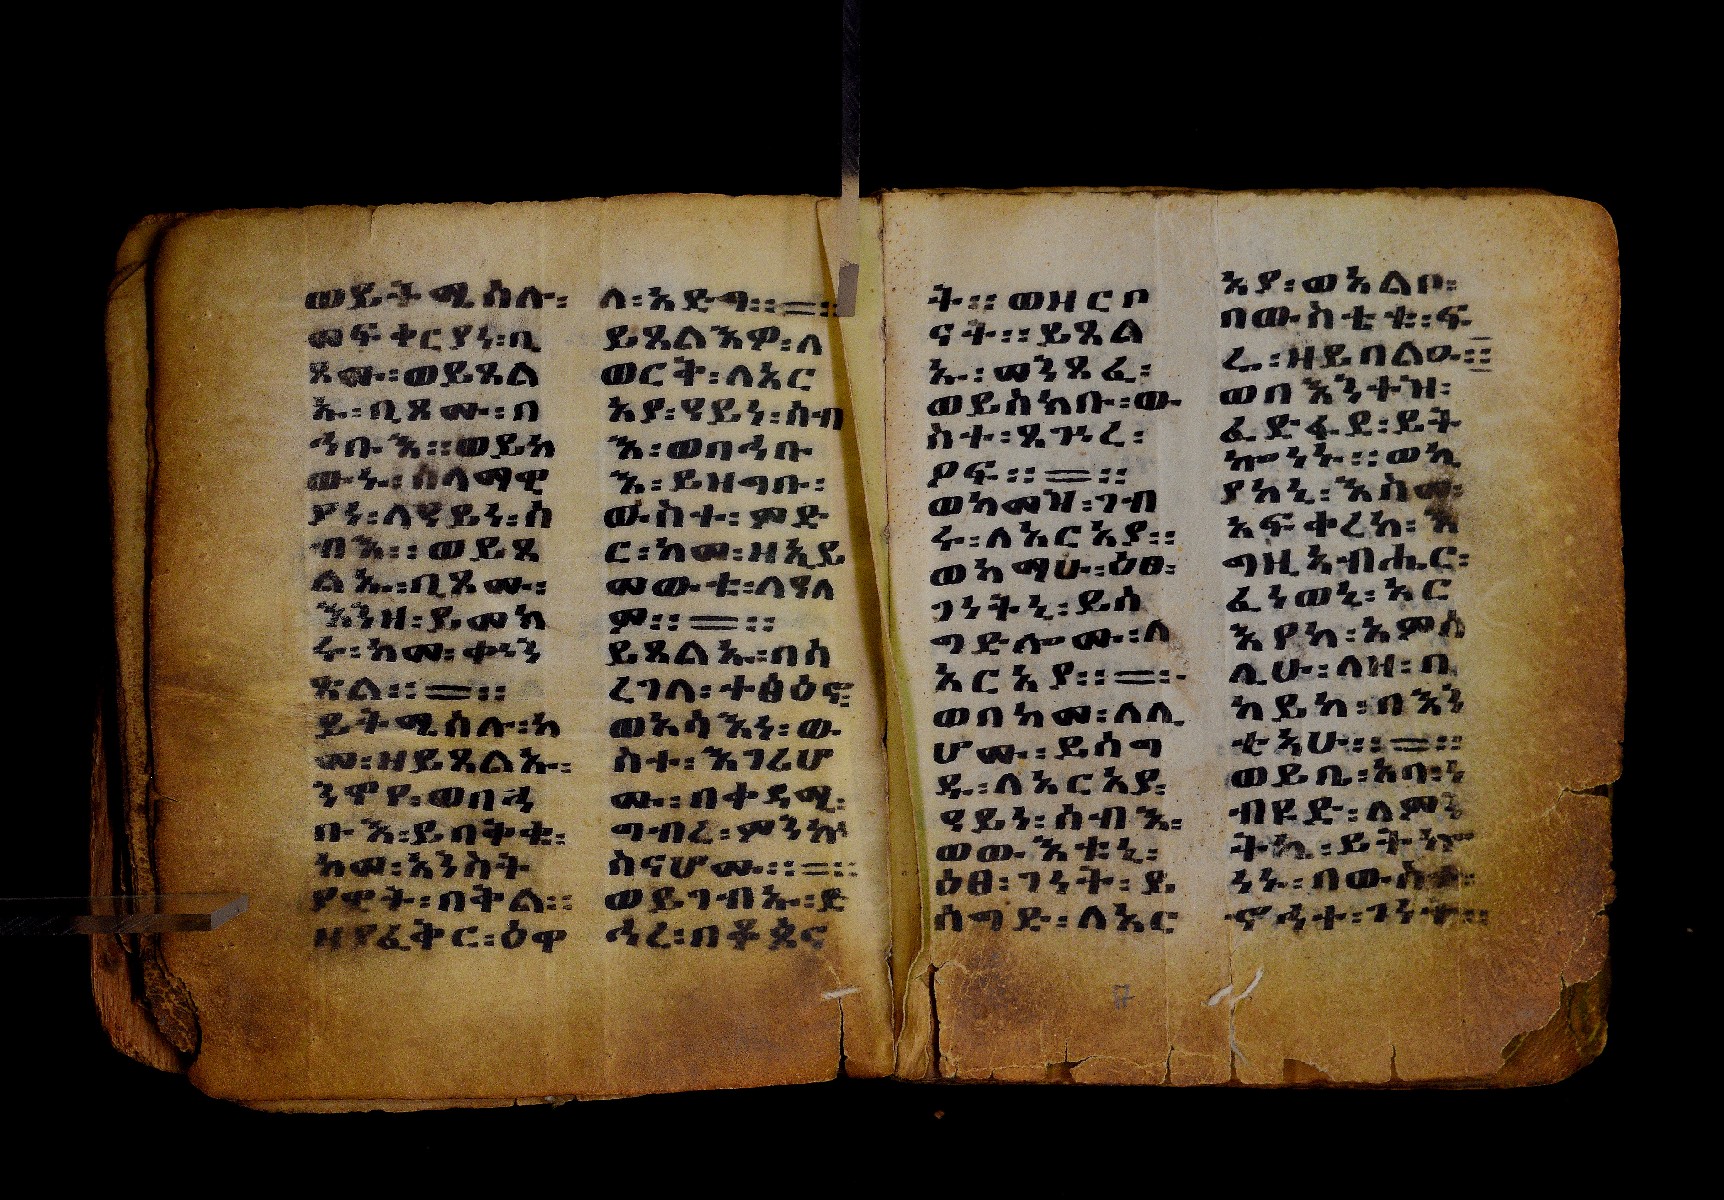 ወይትሜሰሉ፡
መፍቀርያነ፡ቢ
ጸሙ፡ወይጸል
ኡ፡ቢጸሙ፡በ
ኅቡእ።ወይከ
ውኑ፡ሰላማዊ
ያነ፡ለዓይነ፡ሰ
ብእ።ወይጸ
ልኡ፡ቢጸሙ፡
እንዘ፡ይመክ
ሩ፡ከመ፡ቀነን
ጻል።=።
ይትሜሰሉ፡ከ
መ፡ዘይጸልኡ፡
ንዋየ፡ወበኅ
ቡእ፡ይበትቱ፡
ከመ፡አንስት
ያዊት፡በትል።
ዘያፈቅር፡ዕዋ
ለ፡አድግ።=።
ይጸልእዎ፡ለ
ወርት፡ለአር
አያ፡ዓይነ፡ሰብ
እ፡ወበኅቡ
እ፡ይዘግቡ፡
ውስተ፡ምድ
ር፡ከመ፡ዘኢይ
መውቱ፡ለዓለ
ም።=።
ይጸልኡ፡በሰ
ረገላ፡ተፅዕኖ፡
ወአሳእነ፡ው
ስተ፡እገሪሆ
ሙ፡በቀዳሚ፡
ግብረ፡ምንኵ
ስናሆሙ።=።
ወይገብኡ፡ድ
ኅረ፡በቆጵና
ት።ወዘርቦ
ናት።ይጸል
ኡ፡መንጸፈ፡
ወይሰክቡ፡ው
ስተ፡ጸጕረ፡
ዖፍ።=።
ወከመዝ፡ገብ
ሩ፡ለአርአያ።
ወከማሁ፡ዕፀ፡
ገነትኒ፡ይሰ
ግድሎሙ፡ለ
አርአያ።=።
ወበከመ፡ለሊ
ሆሙ፡ይሰግ
ዱ፡ለአርአያ፡
ዓይነ፡ሰብእ፡
ወውእቱኒ፡
ዕፀ፡ገነት፡ይ
ሰግድ፡ለአር
አያ፡ወአልቦ፡
በውስቴቱ፡ፍ
ሬ፡ዘይበልዑ።
ወበእንተዝ፡
ፈድፋደ፡ይት
ኴነኑ።ወኢ
ያከኒ፡እስመ፡
አፍቀረከ፡እ
ግዚአብሔር፡
ፈነወኒ፡አር
አየከ፡አምሳ
ሊሁ፡ለዝ፡ቢ
ከይከ፡በእን
ቲአሁ።=።
ወይቤ፡አባ፡ን
ብዩድ፡ለምን
ትኒ፡ይትኴ
ነኑ፡በውስተ፡
ኖኅተ፡ገነት።